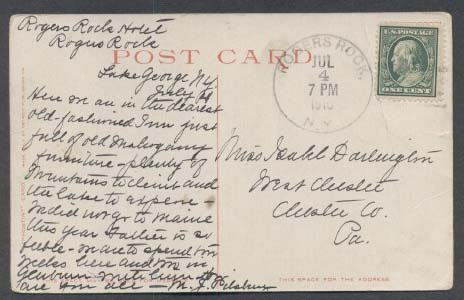 Rogers Rock Hotel
Rogers Rock
POST CARD
Lake George N.Y.
July 4
Here we are in the dearest
old-fashioned Inn just
full of old Mahogany
furniture - plenty of
Mountains to climb and
the Lake to explore
We did not go to Maine
this year Father is so
feeble - we are to spend
weeks here and
are you all - M. J.
ROGERS ROCK,
JUL
4
7 PM
1910
N.Y.
U.S. POSTAGE
ONE CENT
Miss Isabel Darlington
West Chester
Chester Co.
Pa.
THIS SPACE FOR THE ADDRESS.